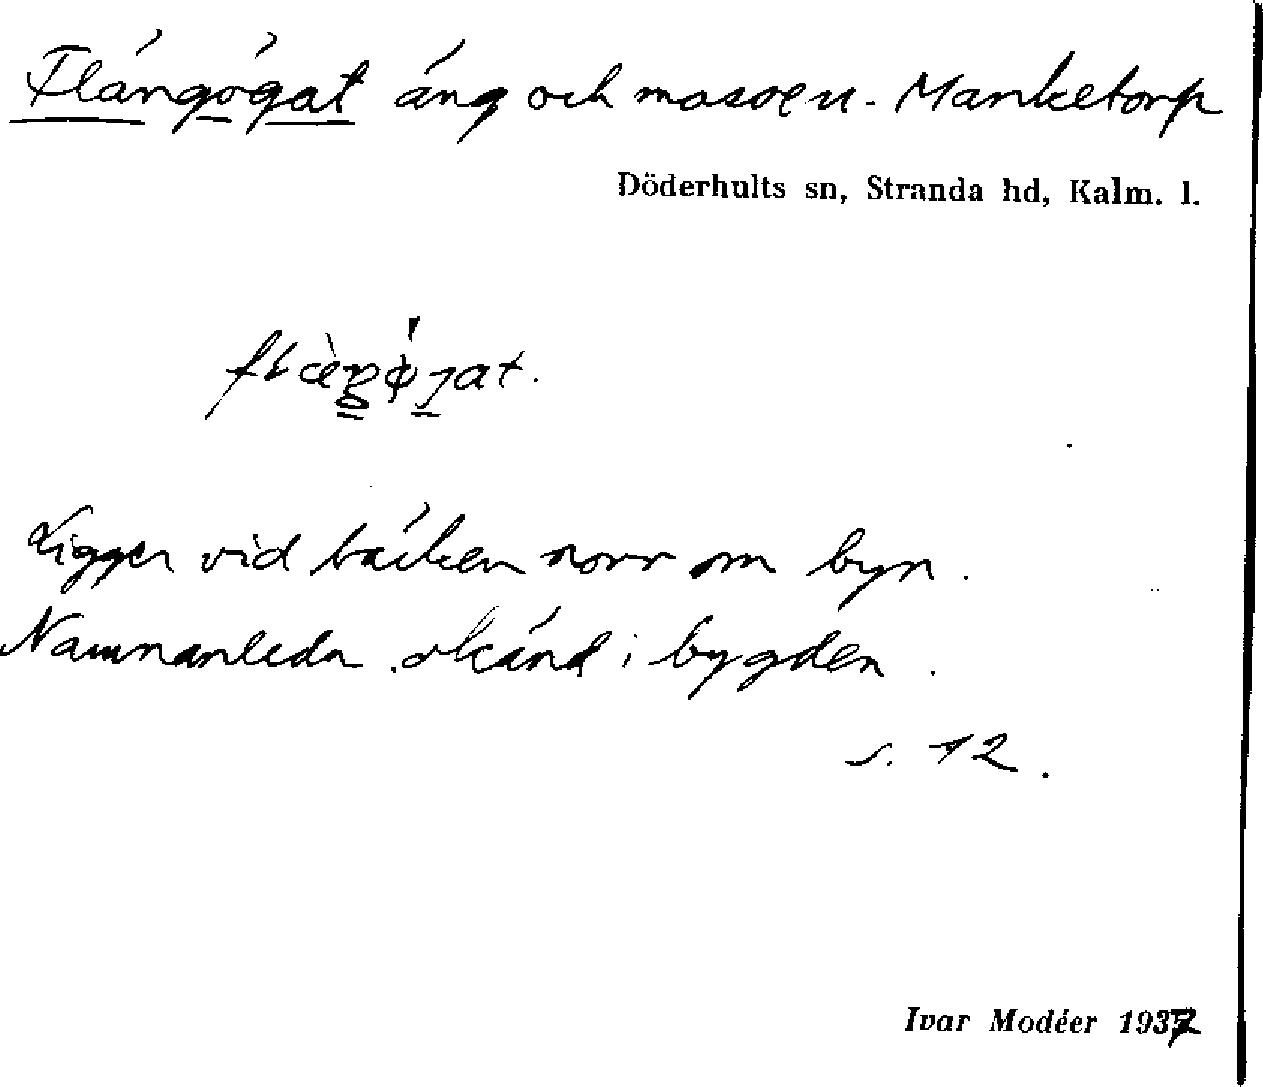 Flängögat äng och mosse u. Manketorp
Döderhults sn, Stranda hd, Kalm. l.
Ligger vid bäcken norr om byn.
Namnanledn. okänd i bygden.
s. 12.
Ivar Modéer 1937